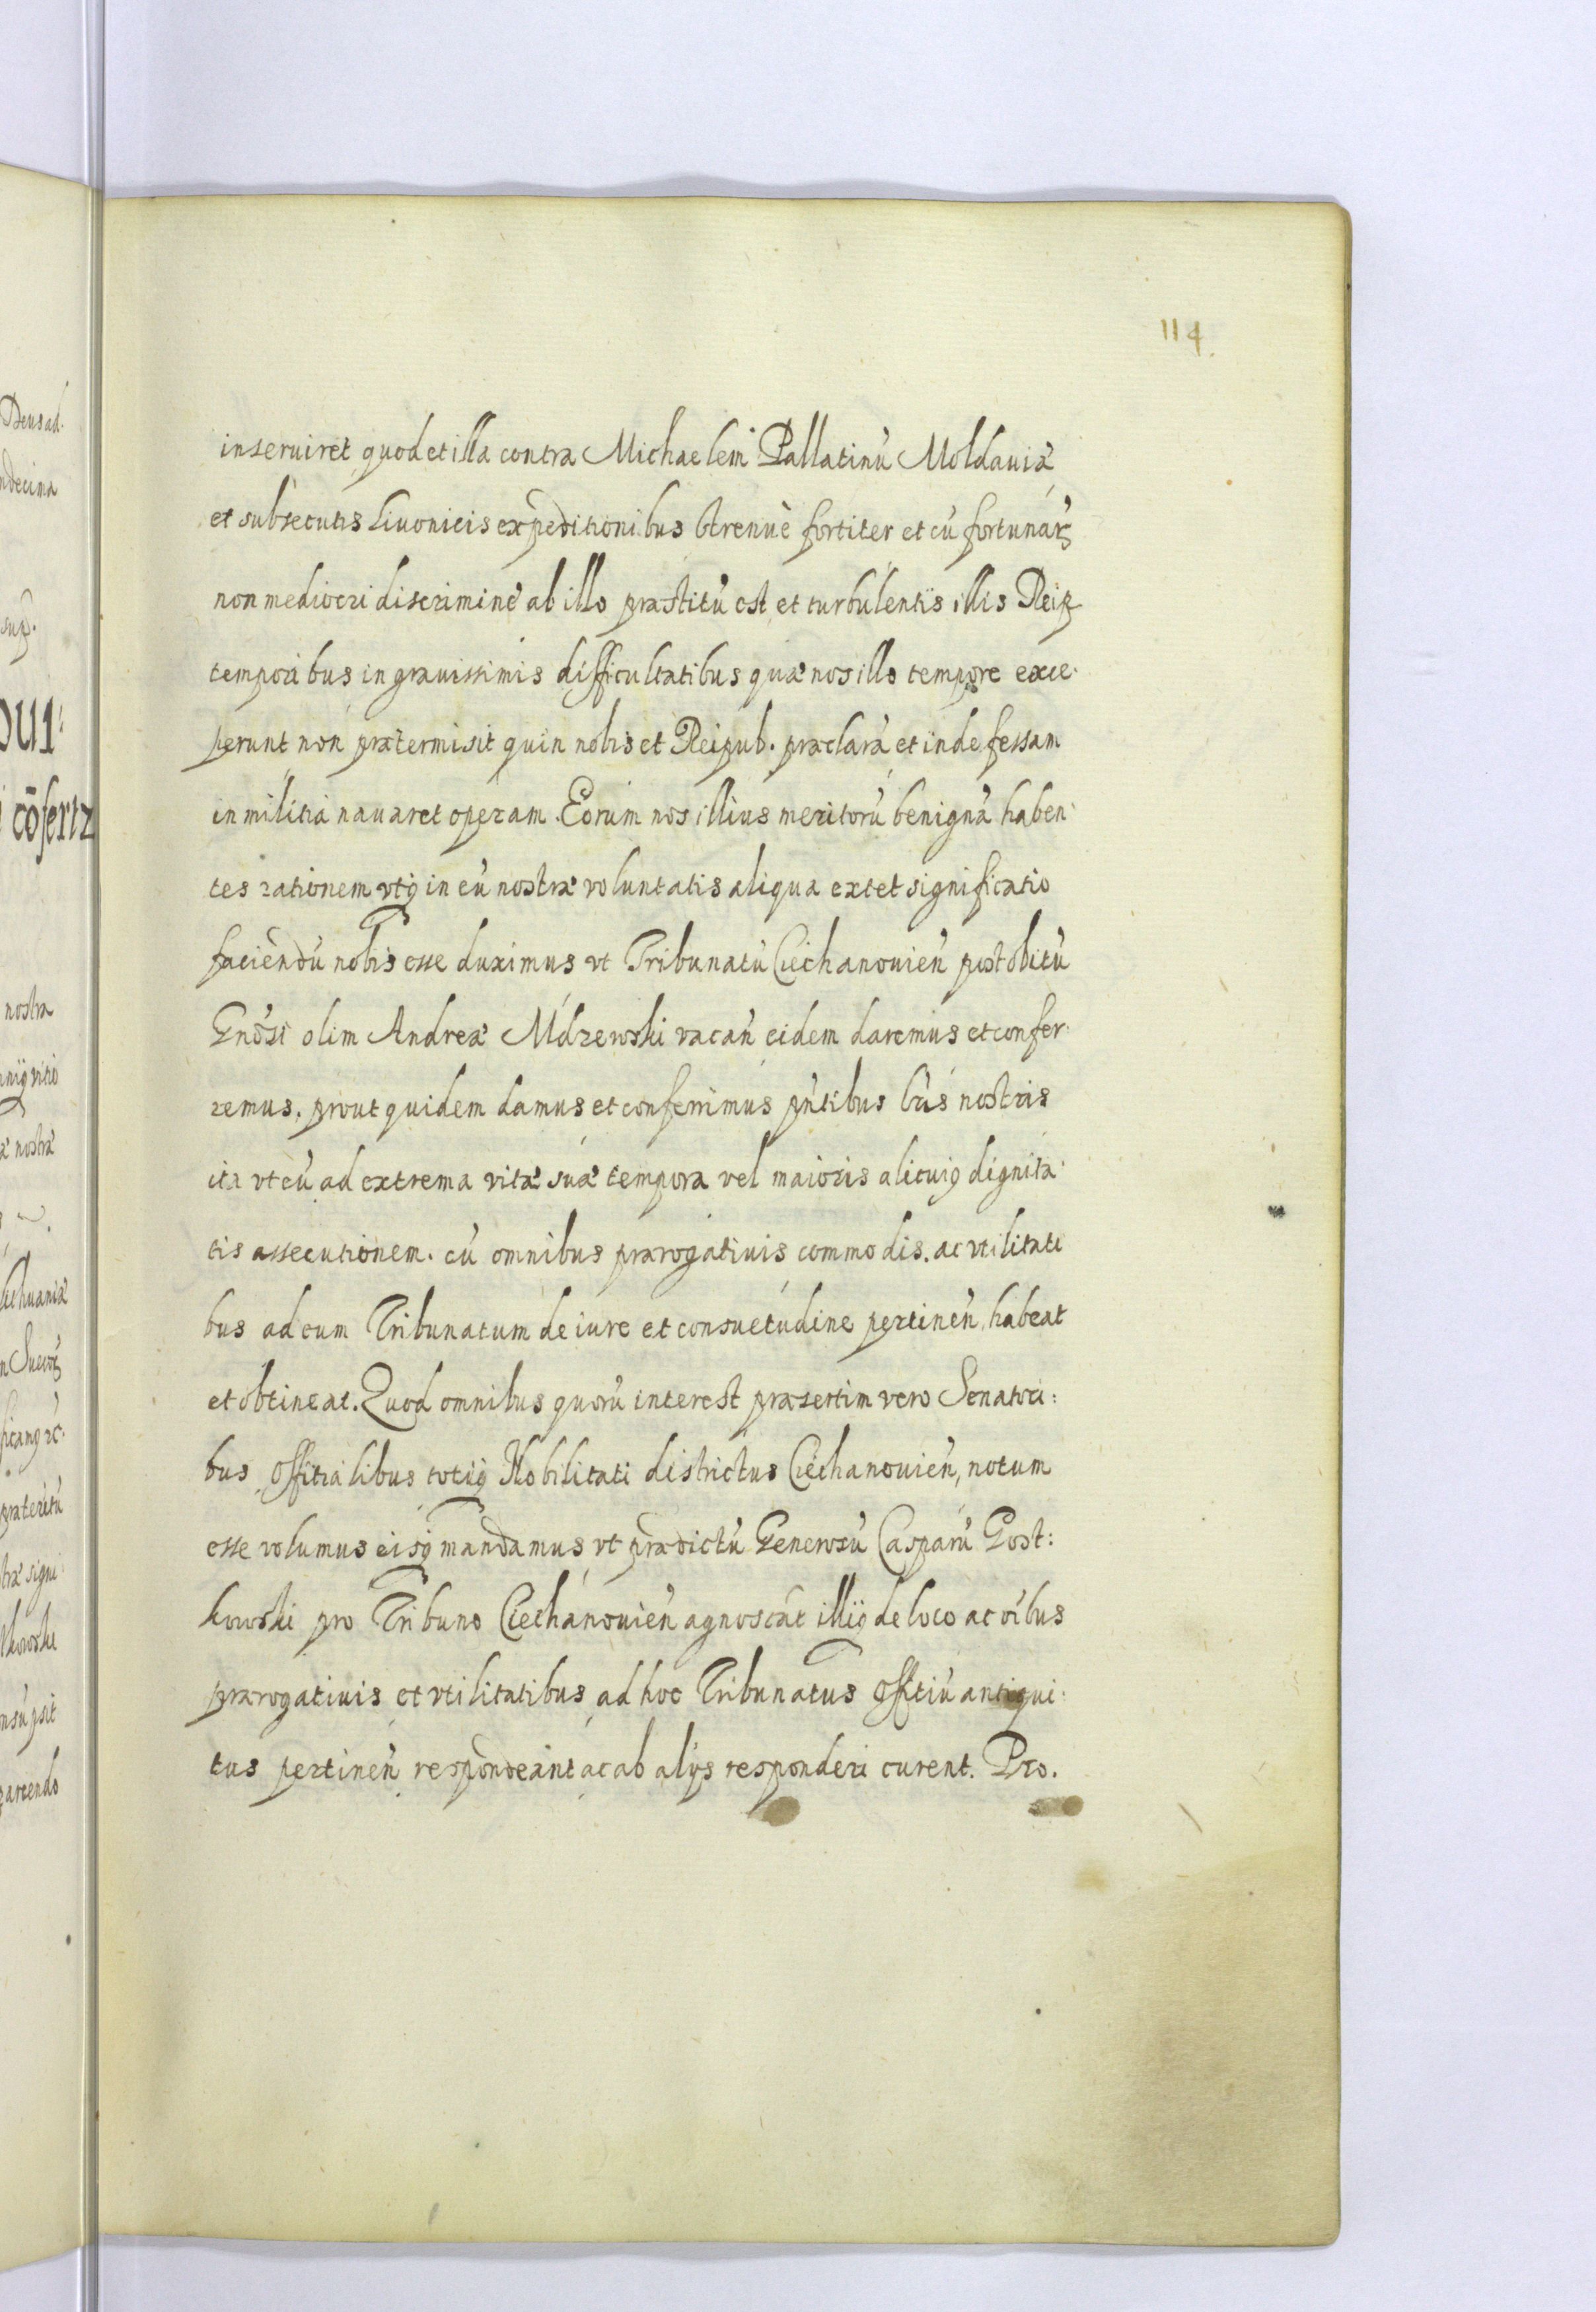 114.
inseruiret quod et illa contra Michaelem Pallatinu̍ Moldauiæ
et subsecutis Liuonicis expeditionibus strenuè fortiter et cu̍ fortunaꝝ
non mediocri discrimine ab illo præstitu̍ est et turbulentis illis Reip
temporibus in grauissimis difficultatibus quæ nos illo tempore exce-
perunt non prætermisit quin nobis et Reipub. præclara̍ et indefessam
in militia nauaret operam. Eorum nos illius meritoru̍ benigna̍ haben-
tes rationem vtqȝ in eu̍ nostræ voluntatis aliqua extet significatio
faciendu̍ nobis esse duximus vt Tribunatu̍ Ciechanouien̍ post obitu̍
Gnosi olim Andreæ Mdzewski vacan̍ eidem daremus et confer-
remus. prout quidem damus et conferimus pn̍tibus lr̍is nostris
ita vt eu̍ ad extrema vitæ suæ tempora vel maioris alicuiȝ dignita-
tis assecutionem. cu̍ omnibus prærogatiuis commodis. ac vtilitati
bus ad eum Tribunatum de iure et consuetudine pertinen̍ habeat
et obtineat. Quod omnibus quoru̍ interest præsertim vero Senatori:
bus Offitialibus totiqȝ Nobilitati districtus Ciechanouien̍, notum
esse volumus eisqȝ mandamus vt prædictu̍ Generosu̍ Casparu̍ Gost:
kowski pro Tribuno Ciechanouien̍ agnosca̍t illiqȝ de loco ac oi̍bus
prærogatiuis et vtilitatibus ad hoc Tribunatus Offitiu̍ antiqui-
tus pertinen̍ respondeant ac ab alijs responderi curent. Pro.
Deus ad.
ndecima
nostra
nostræ
Lithuaniæ
præteritu̍